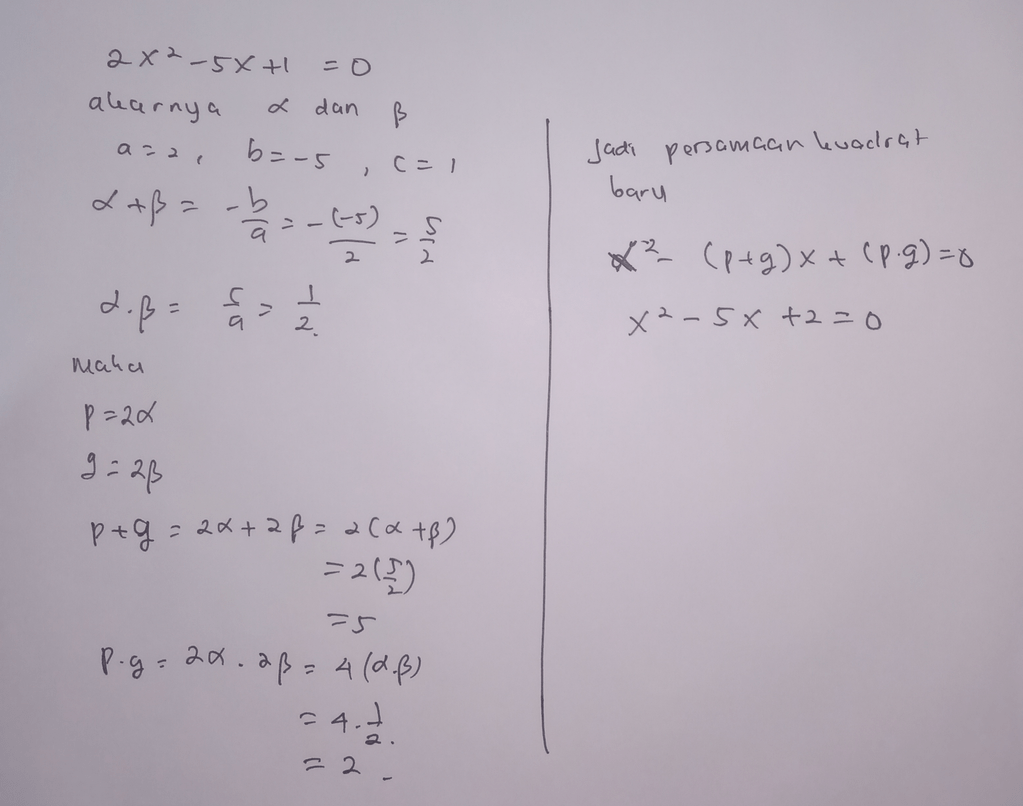 2x² - 5x + 1 = 0
akarnya α dan β
a = 2, b = -5, c = 1
α + β = -b/a = -(-5)/2 = 5/2
α.β = c/a = 1/2.
maka
p = 2α
g = 2β
p + g = 2α + 2β = 2(α + β)
= 2(5/2)
= 5
p.g = 2α . 2β = 4(α.β)
= 4.1/2.
= 2 -
Jadi persamaan kuadrat
baru
x² - (p+g)x + (p.g) = 0
x² - 5x + 2 = 0